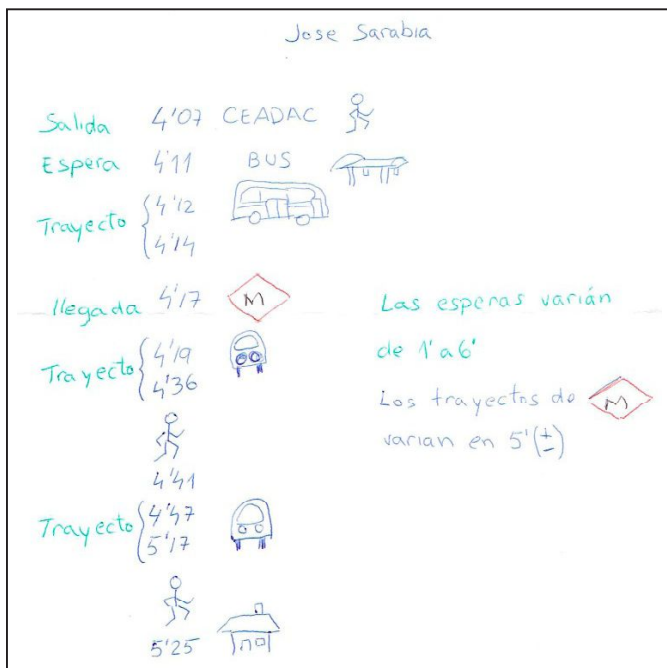 Jose Sarabia
Salida 4'07 CEADAC
Espera 4'11 BUS
Trayecto 4'12
4'14
llegada 4'17 M
Trayecto 4'19
4'36
4'41
Trayecto 4'47
5'17
5'25
Las esperas varián
de 1' a 6'
Los trayectos de M
varian en 5' (±)